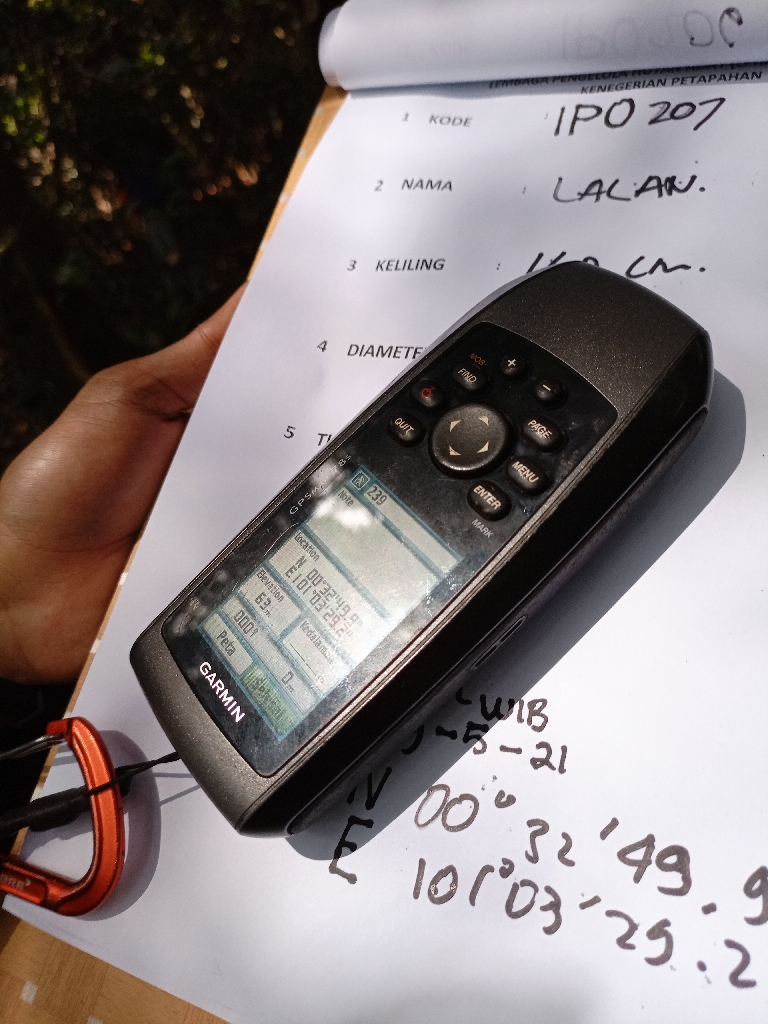 LEMBAGA PENGELOLA HUTAN
KENEGERIAN PETAPAHAN
1 KODE : IPO 207
2 NAMA : LALAN.
3 KELILING : cm.
4 DIAMETE
5
MOB
FIND
+
-
QUIT
PAGE
MENU
ENTER
MARK
239
Note
Location
N 00°32'49.9"
E101°03'29.2"
Elevation
63m
0001
0m
Peta
GARMIN
WIB
-5-21
N 00° 32' 49.9
E 101° 03' 29.2